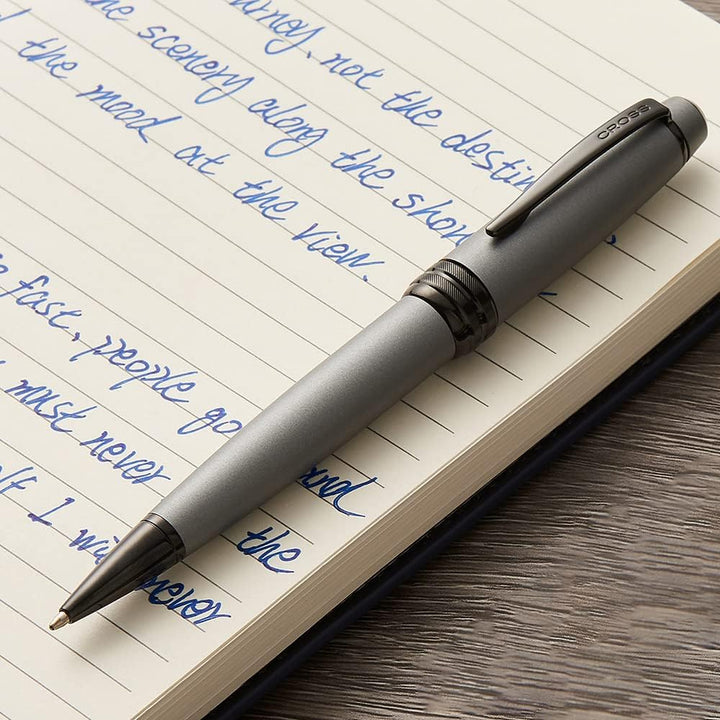 not the destin
the scenery along the shor
the mood at the view.
fast, people go and
must never the
I will never
CROSS